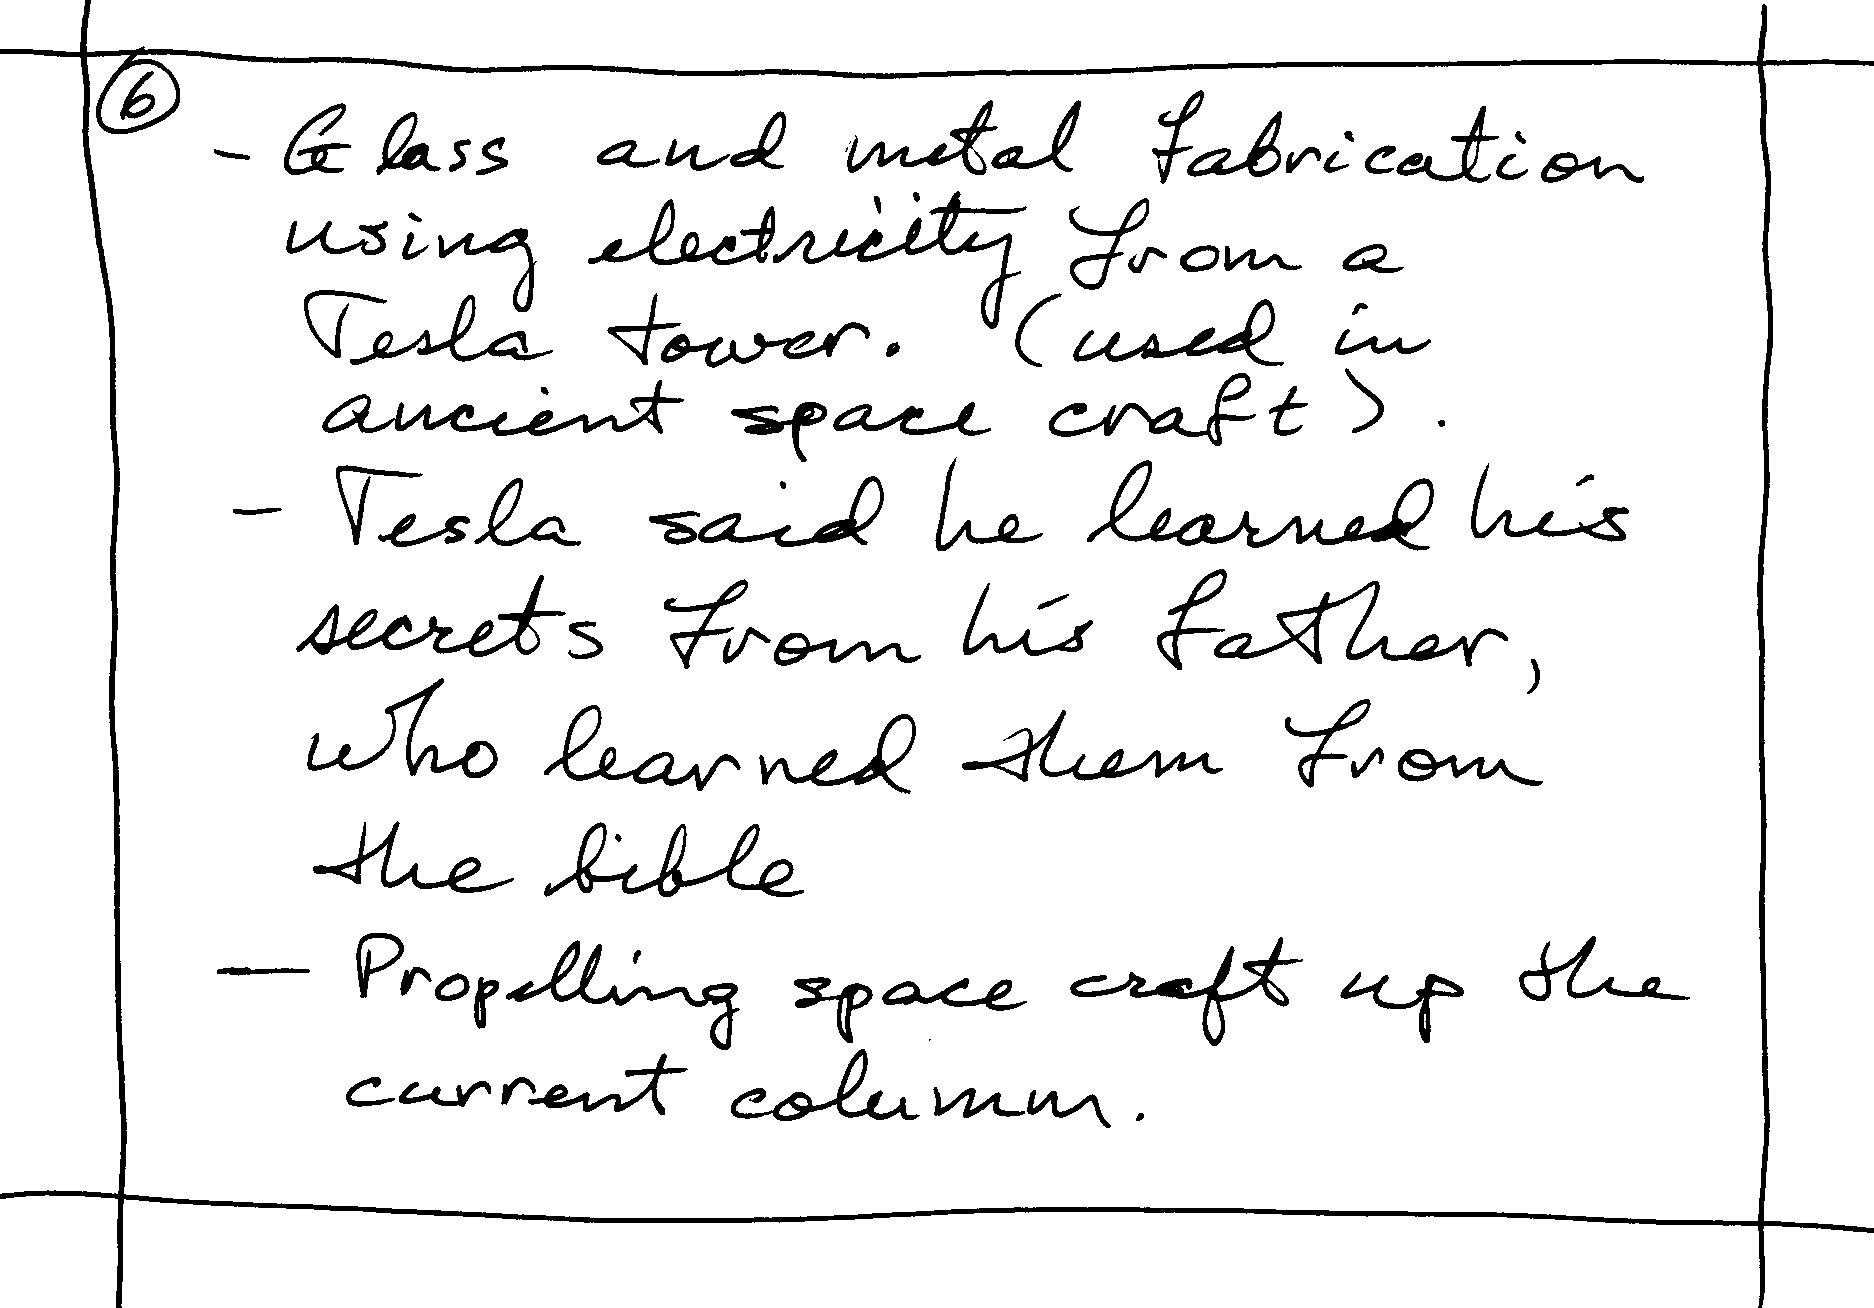 6
- Glass and metal fabrication
using electricity from a
Tesla tower. (used in
ancient space craft).
- Tesla said he learned his
secrets from his father,
who learned them from
the bible
- Propelling space craft up the
current column.